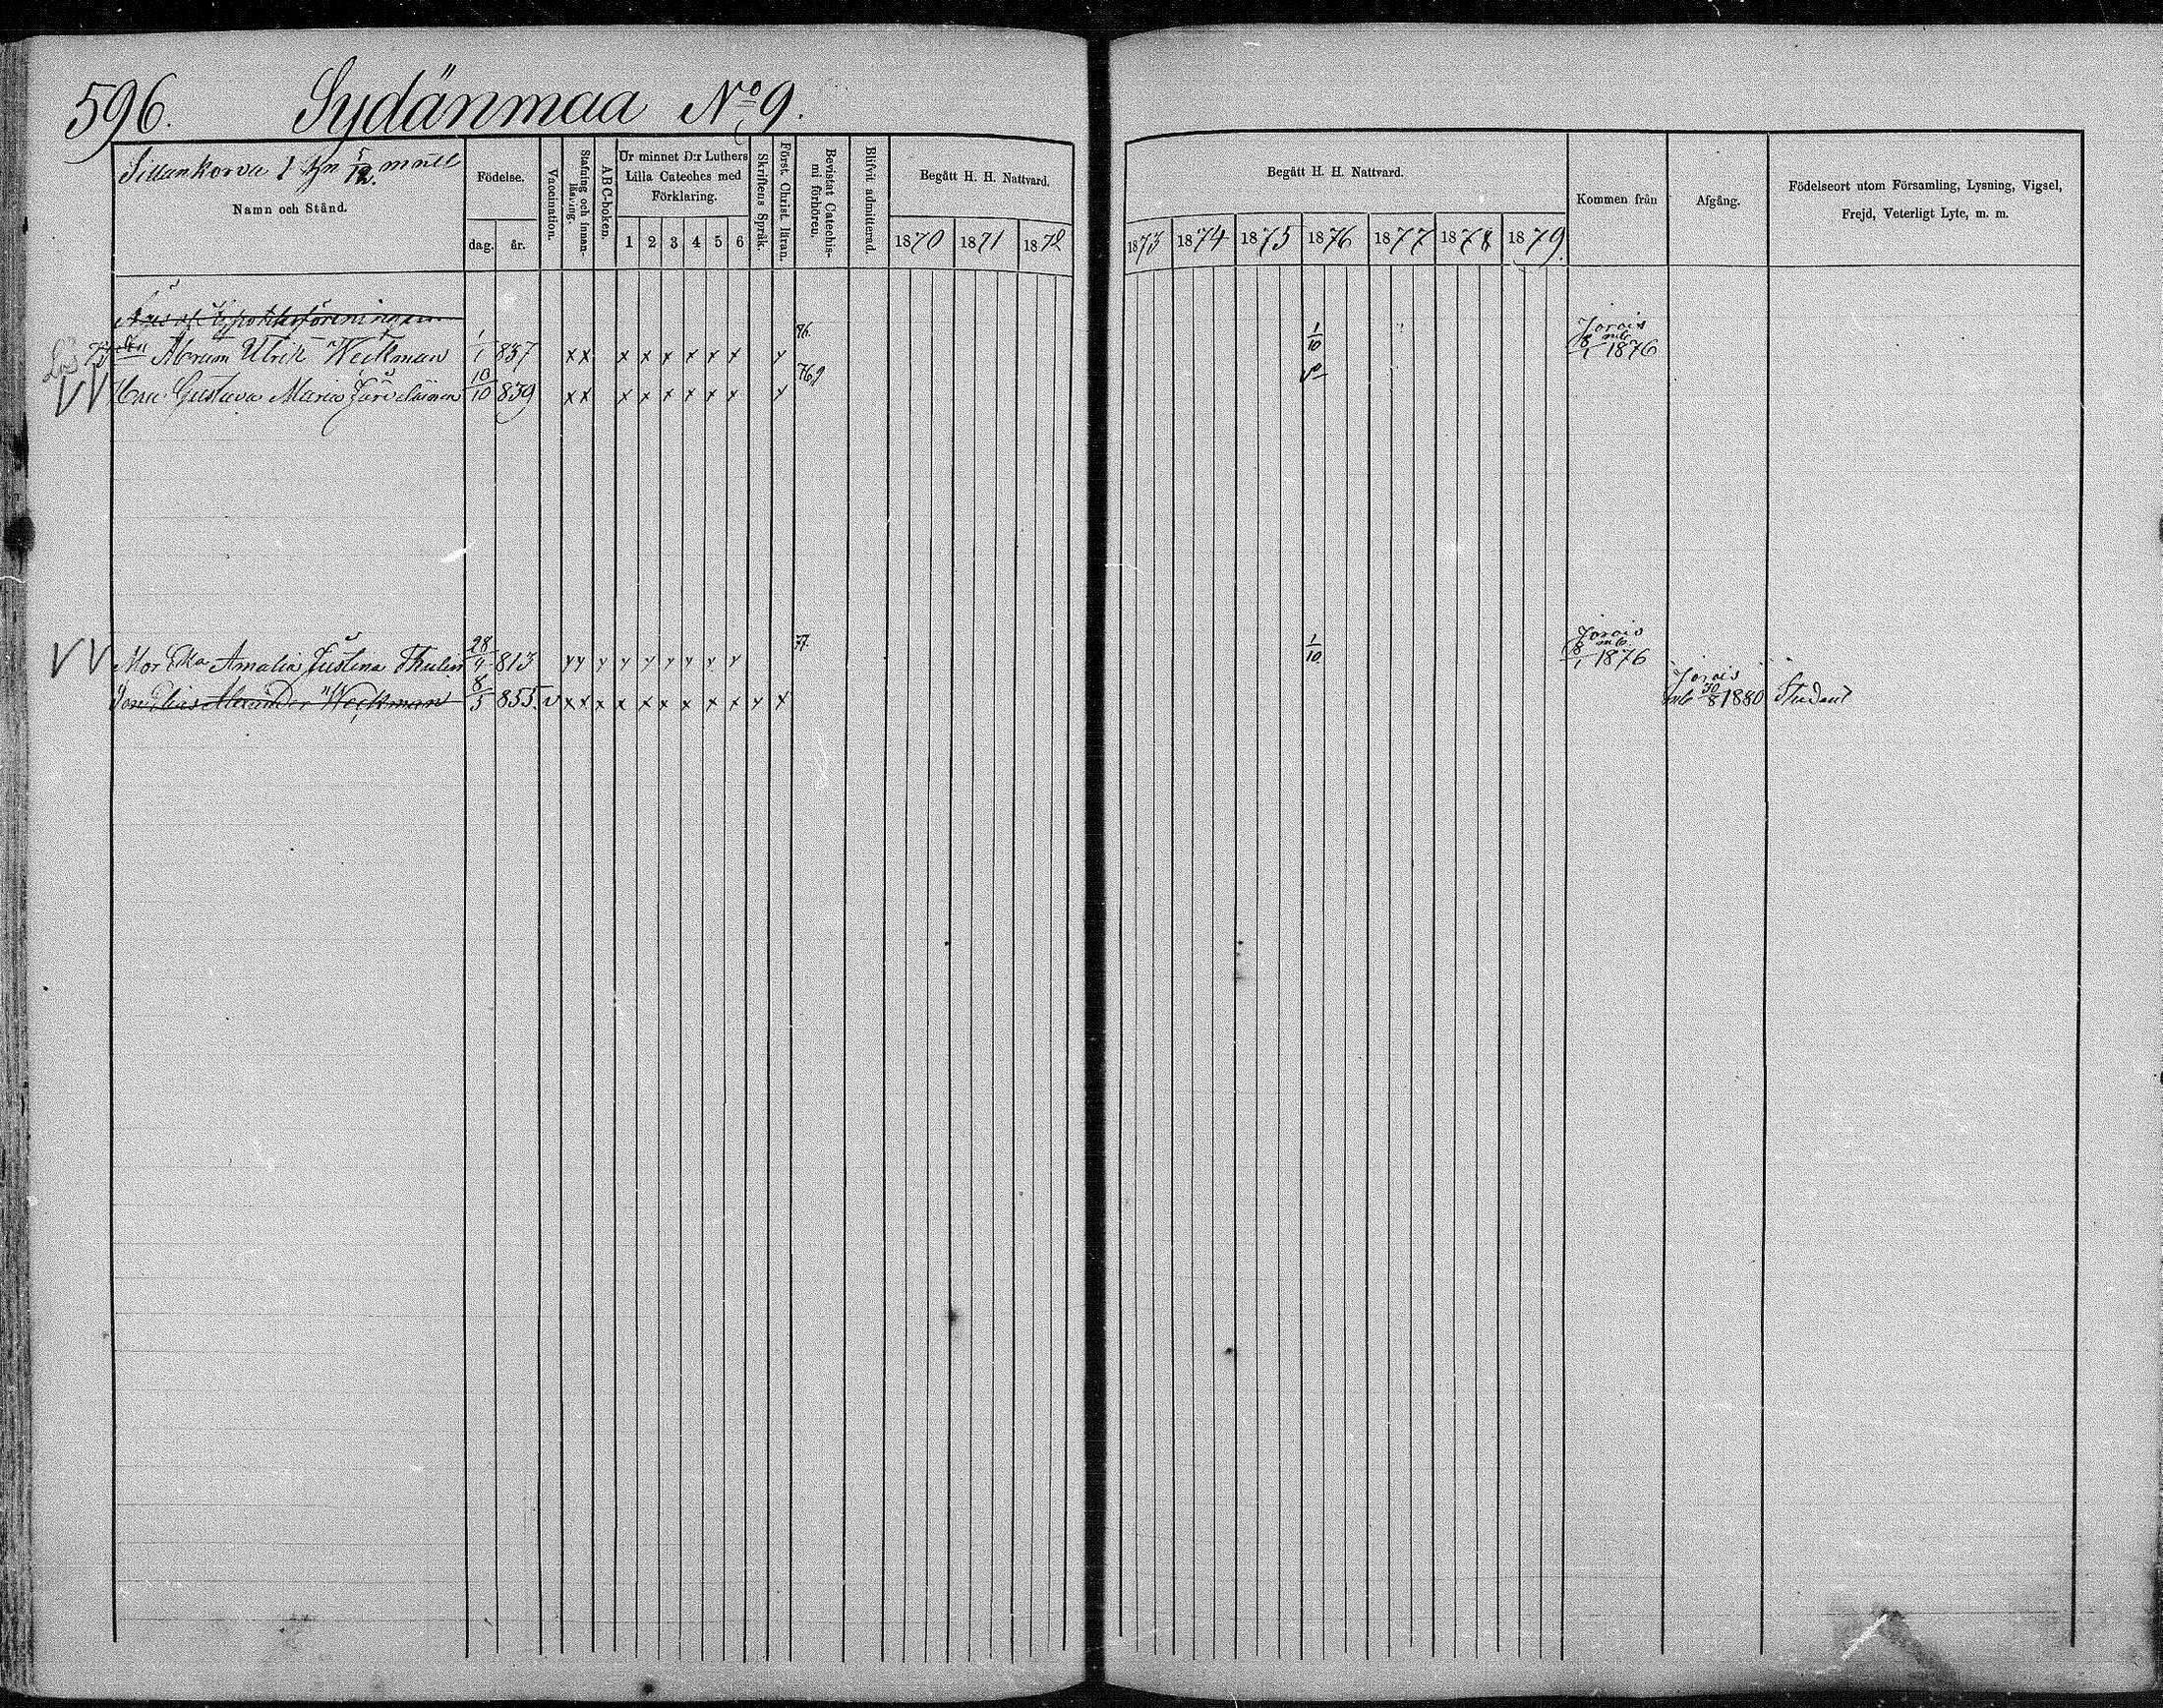 596. Sydänmaa No 9.
Sillankorva 1 5/12 mantl
Namn och Stånd.
Födelse.
dag. år.
Vaccination.
Stafning och innanläsning.
ABC-boken.
Ur minnet D:r Luthers
Lilla Cateches med
Förklaring.
1 2 3 4 5 6
Skriftens Språk.
Först. Christ. läran.
Bevistat Catechismi förhören.
Blifvit admitterad.
Begått H. H. Nattvard.
1870 1871 1872
Begått H. H. Nattvard.
1873 1874 1875 1876 1877 1878 1879
Kommen från
Afgång.
Födelseort utom Församling, Lysning, Vigsel,
Frejd, Veterligt Lyte, m. m.
Hypoteksföreningen
Abram Ulrik Weckman 1/1 837 x x x x x x x x x 76. 1/10 Jorois mb 8/1 1876
Gustava Maria 10/10 839 x x x x x x x x x
Mor Amalia Justina Thulin 28/4 813 y y y y y y y y y 77. 1/10 Jorois mb 8/1 1876
Son Elias Alexander Weckman 8/5 855. v x x x x x x x x x y x Jorois mb 30/8 1880 Student